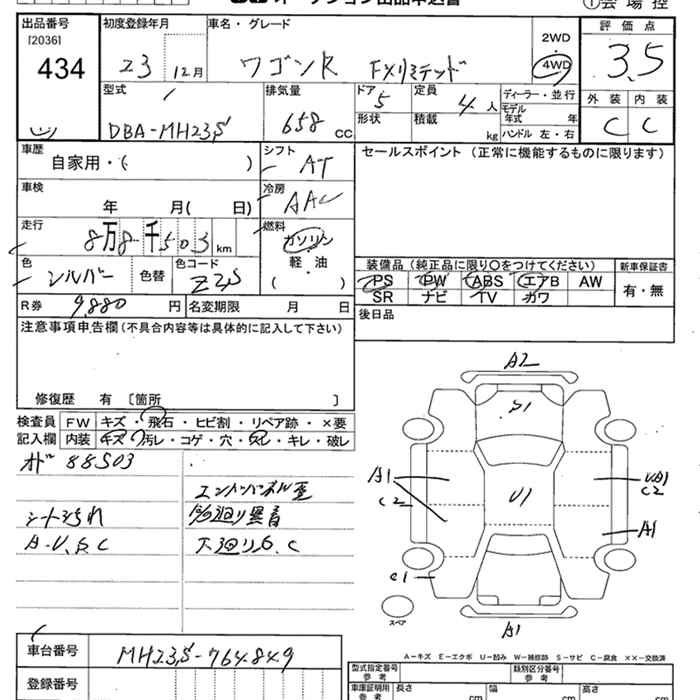 オークション出品申込書
①会場控
出品番号
[2036]
434
初度登録年月
23 12月
車名・グレード
ワゴンR FXリミテッド
2WD
4WD
評価点
3.5
外装 内装
C C
型式
DBA-MH23S
排気量
658 cc
ドア
5
形状
定員
4人
積載
kg
ディーラー・並行
モデル年式 年
ハンドル 左・右
車歴
自家用・( )
シフト
AT
セールスポイント (正常に機能するものに限ります)
車検
年 月( 日)
冷房
AAC
走行
8万8千503km
燃料
ガソリン
軽・油
( )
色
シルバー
色替
色コード
Z2S
装備品 (純正品に限り〇をつけてください)
新車保証書
PS PW ABS エアB AW
有・無
SR ナビ TV カワ
R券 9,880 円
名変期限 月 日
後日品
注意事項申告欄 (不具合内容等は具体的に記入して下さい)
修復歴 有 〔箇所 〕
検査員記入欄
FW キズ・飛石・ヒビ割・リペア跡・×要
内装 キズ・汚レ・コゲ・穴・スレ・キレ・破レ
オド 88503
シート汚れ
A-U、G、C
下廻りG、C
A2
S1
A1
C2
U1
C2
A1
C1
A1
スペア
A-キズ E-エクボ U-凹み W-補修跡 S-サビ C-腐食 ××-交換済
車台番号
MH23S-764849
登録番号
型式指定番号
参考
類別区分番号
参考
車庫証明用
参考
長さ cm
幅 cm
高さ cm